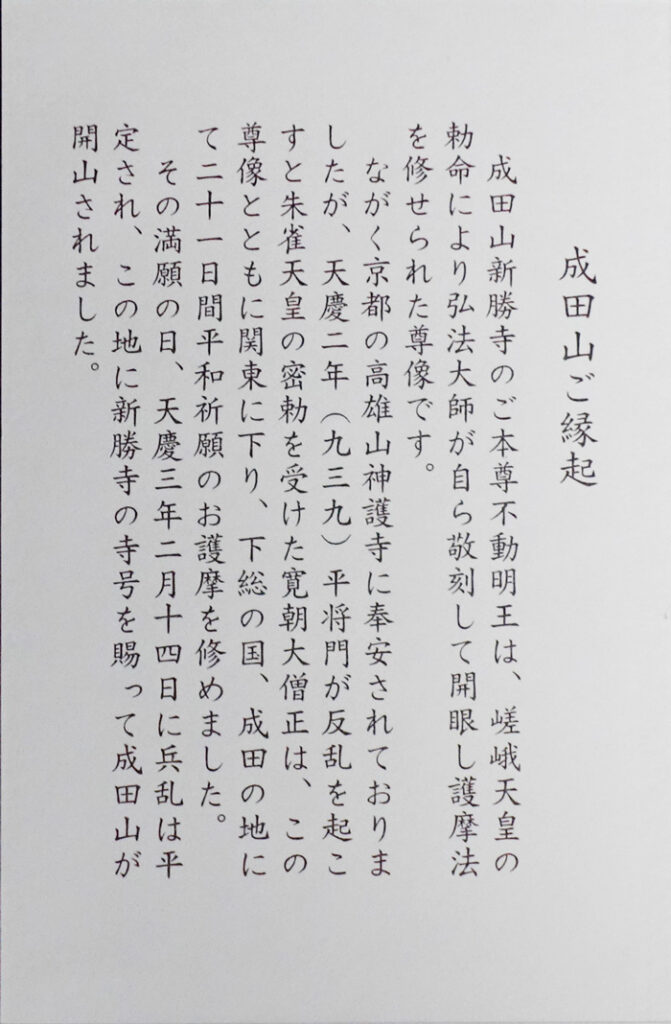 成田山ご縁起
成田山新勝寺のご本尊不動明王は、嵯峨天皇の
勅命により弘法大師が自ら敬刻して開眼し護摩法
を修せられた尊像です。
ながく京都の高雄山神護寺に奉安されておりま
したが、天慶二年（九三九）平将門が反乱を起こ
すと朱雀天皇の密勅を受けた寛朝大僧正は、この
尊像とともに関東に下り、下総の国、成田の地に
て二十一日間平和祈願のお護摩を修めました。
その満願の日、天慶三年二月十四日に兵乱は平
定され、この地に新勝寺の寺号を賜って成田山が
開山されました。